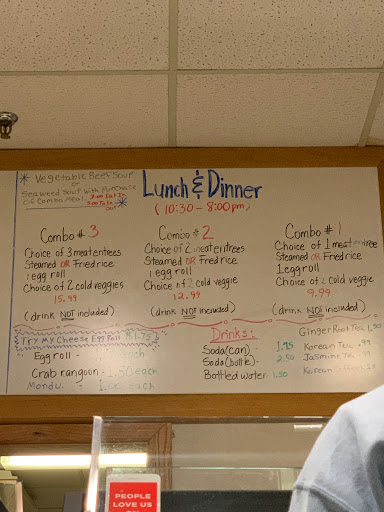 * Vegetable Beef Soup
or
Seaweed Soup with Purchase
of Combo Meal
Lunch & Dinner
(10:30 - 8:00pm)
Combo # 3
Choice of 3 meat entrees
Steamed OR Fried rice
1 egg roll
Choice of 2 cold veggies
15.99
(drink NOT included)
Combo # 2
Choice of 2 meat entrees
Steamed OR Fried rice
1 egg roll
Choice of 2 cold veggie
12.99
(drink NOT included)
Combo # 1
Choice of 1 meat entree
Steamed OR Fried rice
1 egg roll
Choice of 2 cold veggie
9.99
(drink NOT included)
Try My Cheese Egg Roll $1.75
Egg roll -
Crab rangoon - 1.50 each
Mondu - 1.00 each
Drinks:
Soda (can) - 1.95
Soda (bottle) - 2.50
Bottled water 1.50
Ginger Root Tea 1.99
Korean Tea .99
Jasmine Tea
Korean
PEOPLE
LOVE US
ON